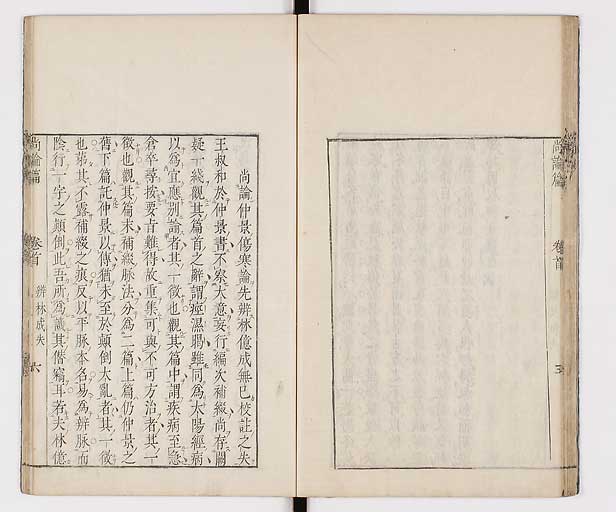 尚論篇
卷首
五
尚論仲景傷寒論先辨林億成無已校註之失
王叔和於仲景書不察大意妄行編次補綴尚存闕
疑一綫觀其篇首之辭謂痙濕暍雖同為太陽經病
以為宜應別論者其一徵也觀其篇中謂疾病至急
倉卒尋按要者難得故重集可與不可方治者其一
徵也觀其篇末補綴脉法分為二篇上篇仍仲景之
舊下篇託仲景以傳猶未至於顛倒大亂者其一徵
也第其不露補綴之痕反以平脉本名易為辨脉而
陰行一字之顛倒此吾所為識其僭竊耳若夫林億
尚論篇
卷首
辨林成失
六